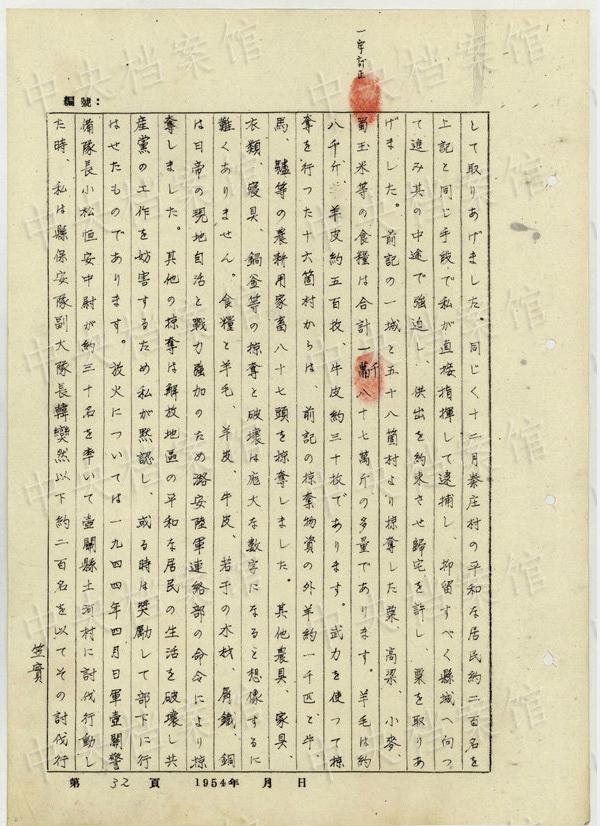 一字訂正
編號：
して取りあげました。同じく十二月秦庄村の平和な居民約二百名を
上記と同じ手段で私が直接指揮して逮捕し、抑留すべく縣城へ向つ
て進み其の中途で強迫し、供出を約束させ歸宅を許し、粟を取りあ
げました。前記の一城と五十八箇村より掠奪した粟、高梁、小麥、
蜀玉米等の食糧は合計一千八十七萬斤の多量であります。羊毛は約
八千斤、羊皮約五百枚、牛皮約三十枚であります。武力を使つて掠
奪を行つた十六箇村からは、前記の掠奪物資の外羊約一千匹と牛、
馬、驢等の農耕用家畜八十七頭を掠奪しました。其他農具、家具、
衣類、寢具、鍋釜等の掠奪と破壞は厖大な数字になると想像するに
難くありません。食糧と羊毛、羊皮、牛皮、若干の木材、屑鐵、銅
は日帝の現地自活と戰力強加のため潞安陸軍連絡部の命令により掠
奪しました。其他の掠奪は解放地區の平和な居民の生活を破壞し共
産黨の工作を妨害するため私が黙認し、或る時は奬勵して部下に行
はせたものであります。放火については一九四四年四月日軍壺關警
備隊長小松恒安中尉が約三十名を率いて壺關縣土河村に討伐行動し
た時、私は縣保安隊副大隊長韓變然以下約二百名を以てその討伐行
笠實
第 32 頁 1954年 月 日
中央档案馆